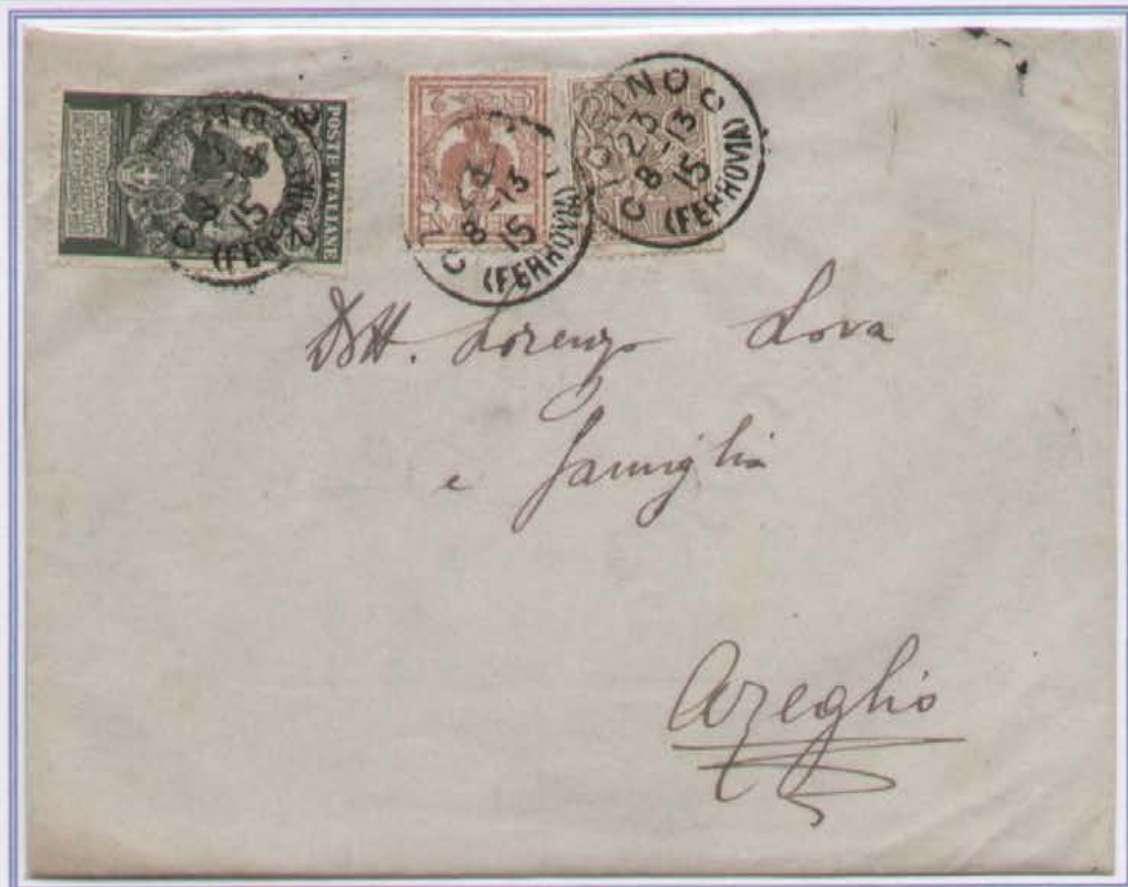 POSTE ITALIANE
2
TORINO
8 - 3
15
(FERROVIA)
TORINO C
23
8 - 13
15
(FERROVIA)
Dott. Lorenzo Lova
e famiglia
Azeglio